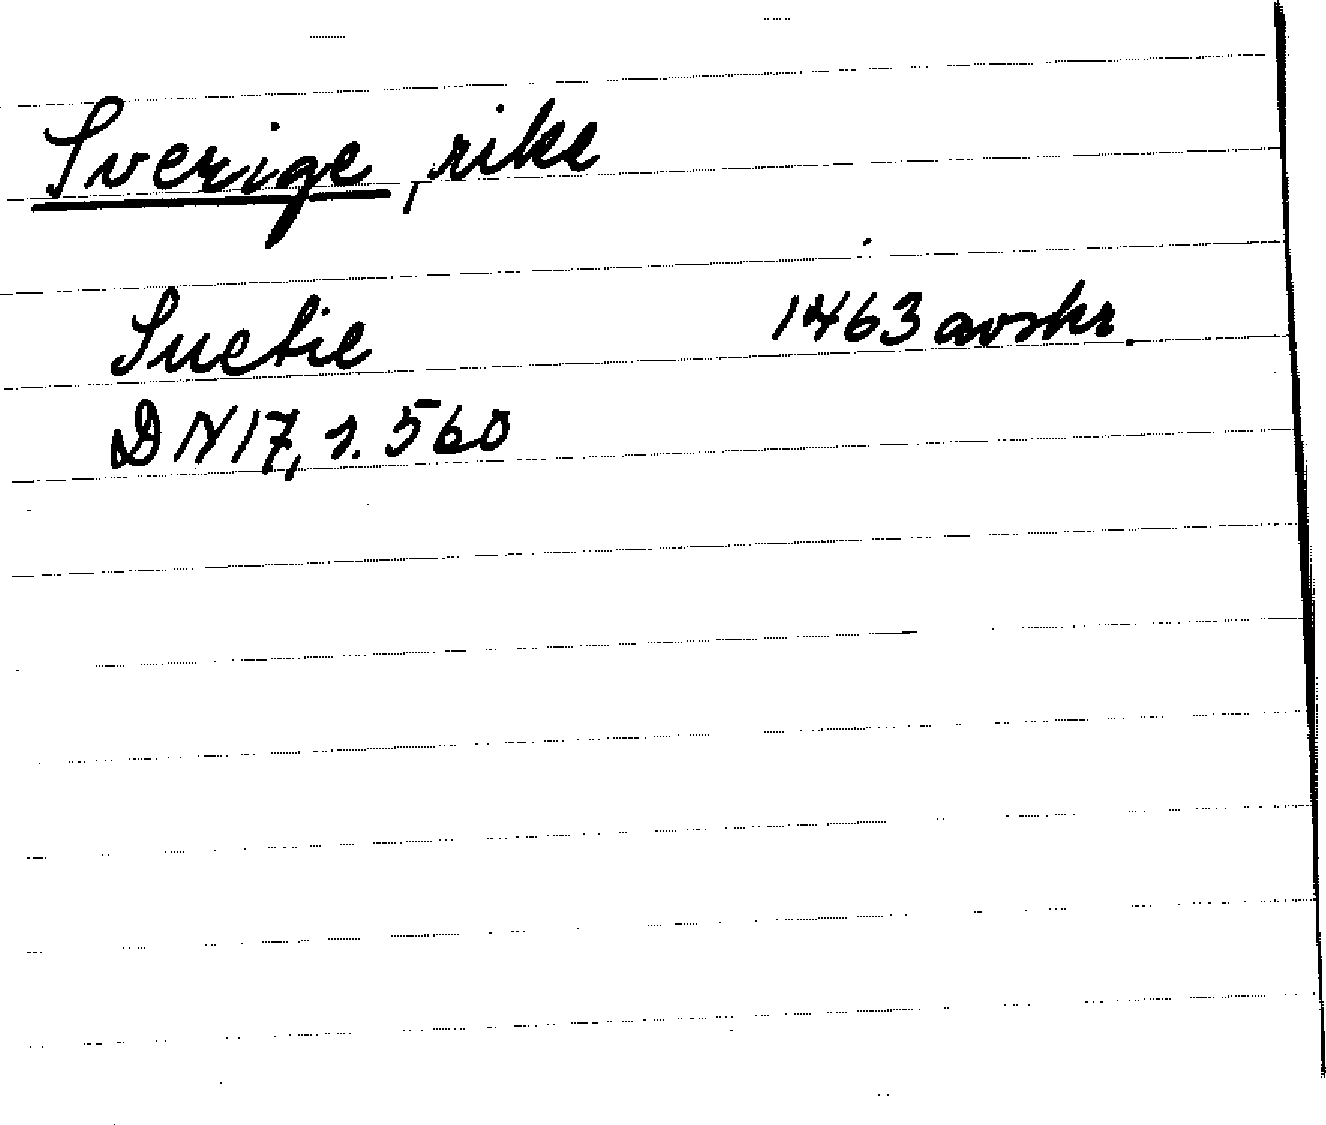 Sverige, rike
Suetie 1463 avskr.
DN 17, s. 560